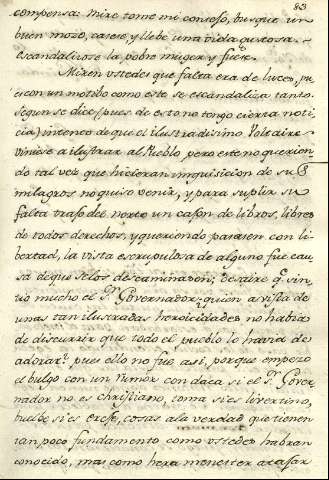 83
compensa: Mire tome mi consejo, busque un
buen mozo, casese, y llebe una vida gustosa
escandalizose la pobre muger y fuese.
Miren ustedes que falta era de luces, pues
con un motibo como este se escandaliza tanto.
Segun se dice (pues de esto no tengo cierta noti
cia) intento de que el ilustradisimo Voltaire
viniese a ilustrar al Pueblo pero este no querien
do tal vez que hicieran inquisicion de sus
milagros no quiso venir, y para suplir su
falta trajo del norte un cajon de libros, libres
de todos derechos, y queriendo pasasen con li
bertad, la vista escrupulosa de alguno fue cau
sa de que se los descaminasen; desaire q.e sin
tio mucho el S.r Governador: quien a vista de
unas tan ilustradas heroicidades no habia
de discurrir que todo el pueblo lo havia de
adorar? pues ello no fue asi, porque empezo
el bulgo con un rumor con daca si el S.r Gover
nador no es christiano, toma si es libertino,
buelbe si es cosas a la verdad que tienen
tan poco fundamento como ustedes habran
conocido, mas como hera menester atajar